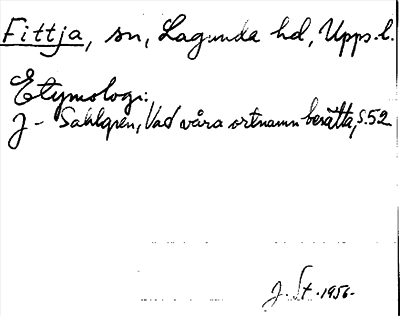 Fittja, sn, Lagunda hd, Upps. l.
Etymologi:
J - Sahlgren, Vad våra ortnamn berätta, s. 52
J. St. 1956.